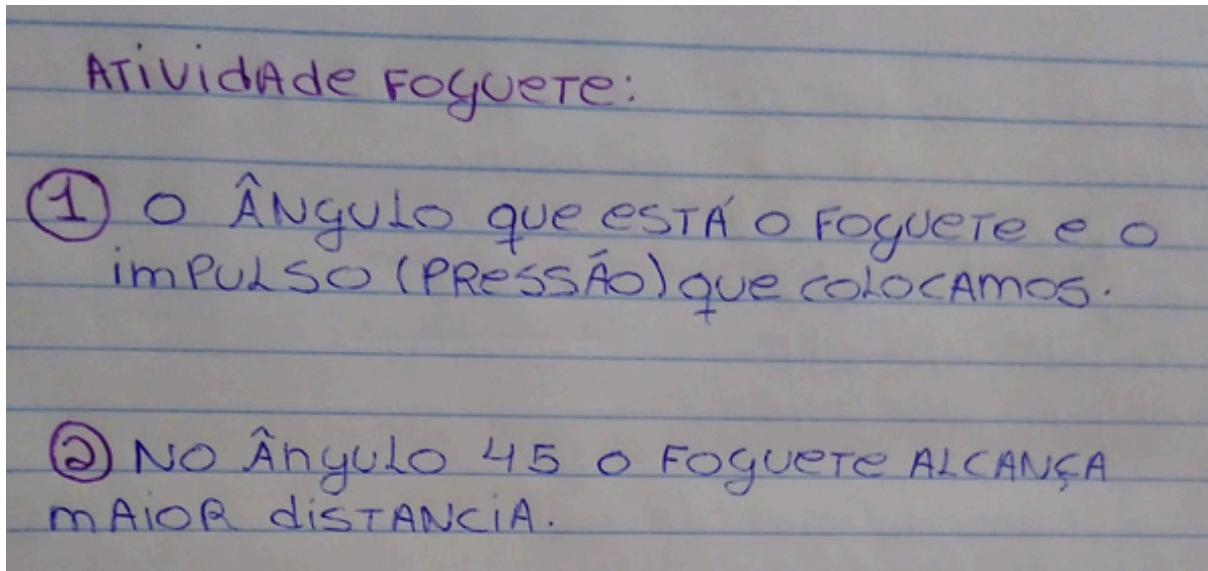 ATiVidAde FOGUeTe:
1 O ÂNgULO que eSTÁ O FOGUeTe e O
imPULSO (PReSSÃO) que COLOCAMOS.
2 NO ÂngULO 45 O FOGUeTe ALCANÇA
mAiOR diSTANCiA.